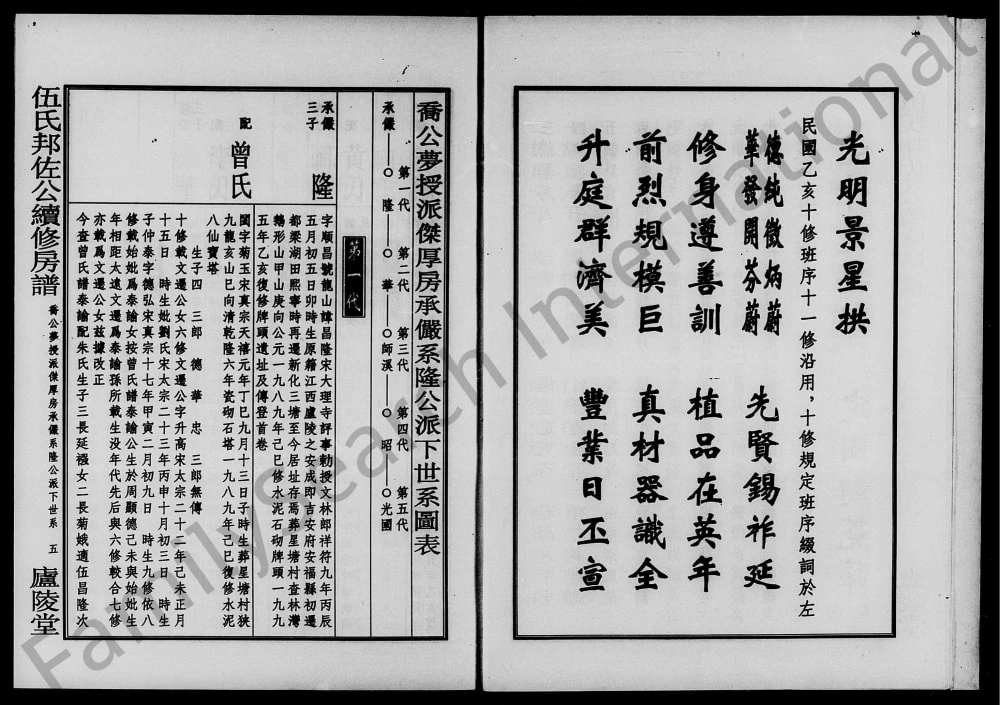 光明景星拱
民國乙亥十修班序十一修沿用，十修規定班序綴詞於左
德純徵炳蔚 先賢錫祚延
華發開芬蔚
修身遵善訓 植品在英年
前烈規模巨 真材器識全
升庭群濟美 豐業日丕宣
喬公夢授派傑厚房承儼系隆公派下世系圖表
第一代 第二代 第三代 第四代 第五代
承儼 隆 華 師溪 昭 光國
第一代
承儼三子 隆
字順昌號龍山諱昌隆宋大理寺評事勅授文林郎祥符九年丙辰
五月初五日卯時生原籍江西盧陵之安成即吉安府安福縣初遷
都梁湖田熙寧時再遷新化三塘至今居址存焉葬星塘村查林灣
鵝形山甲山庚向公元一九八九年己巳修水泥石砌牌頭一九九
五年乙亥復修牌頭遺址及傳登首卷
配 曾氏
閨字菊玉宋真宗天禧元年丁巳九月十三日子時生葬星塘村狹
九龍亥山巳向清乾隆六年瓷砌石塔一九八九年己巳復修水泥
八仙寶塔
生子四 三郎 德 華 忠 三郎無傳
十修載文遷公女六修文遷公字升高宋太宗二十一年己未正月
十五日 時生妣劉氏宋太宗二十三年丙申十月初三日 時生
子仲泰字德弘宋真宗十七年甲寅二月初九日 時生九修依八
修載始妣爲泰諭女按曾氏譜泰諭公生於周顯德己未與始妣生
年相距太遠文遷爲泰諭孫所載生没年代先后與六修較合七修
亦載爲文遷公女兹據改正
今查曾氏譜泰諭配朱氏生子三長延襁女二長菊娥適伍昌隆次
伍氏邦佐公續修房譜 喬公夢授派傑厚房承儼系隆公派下世系 五 廬陵堂
FamilySearch International